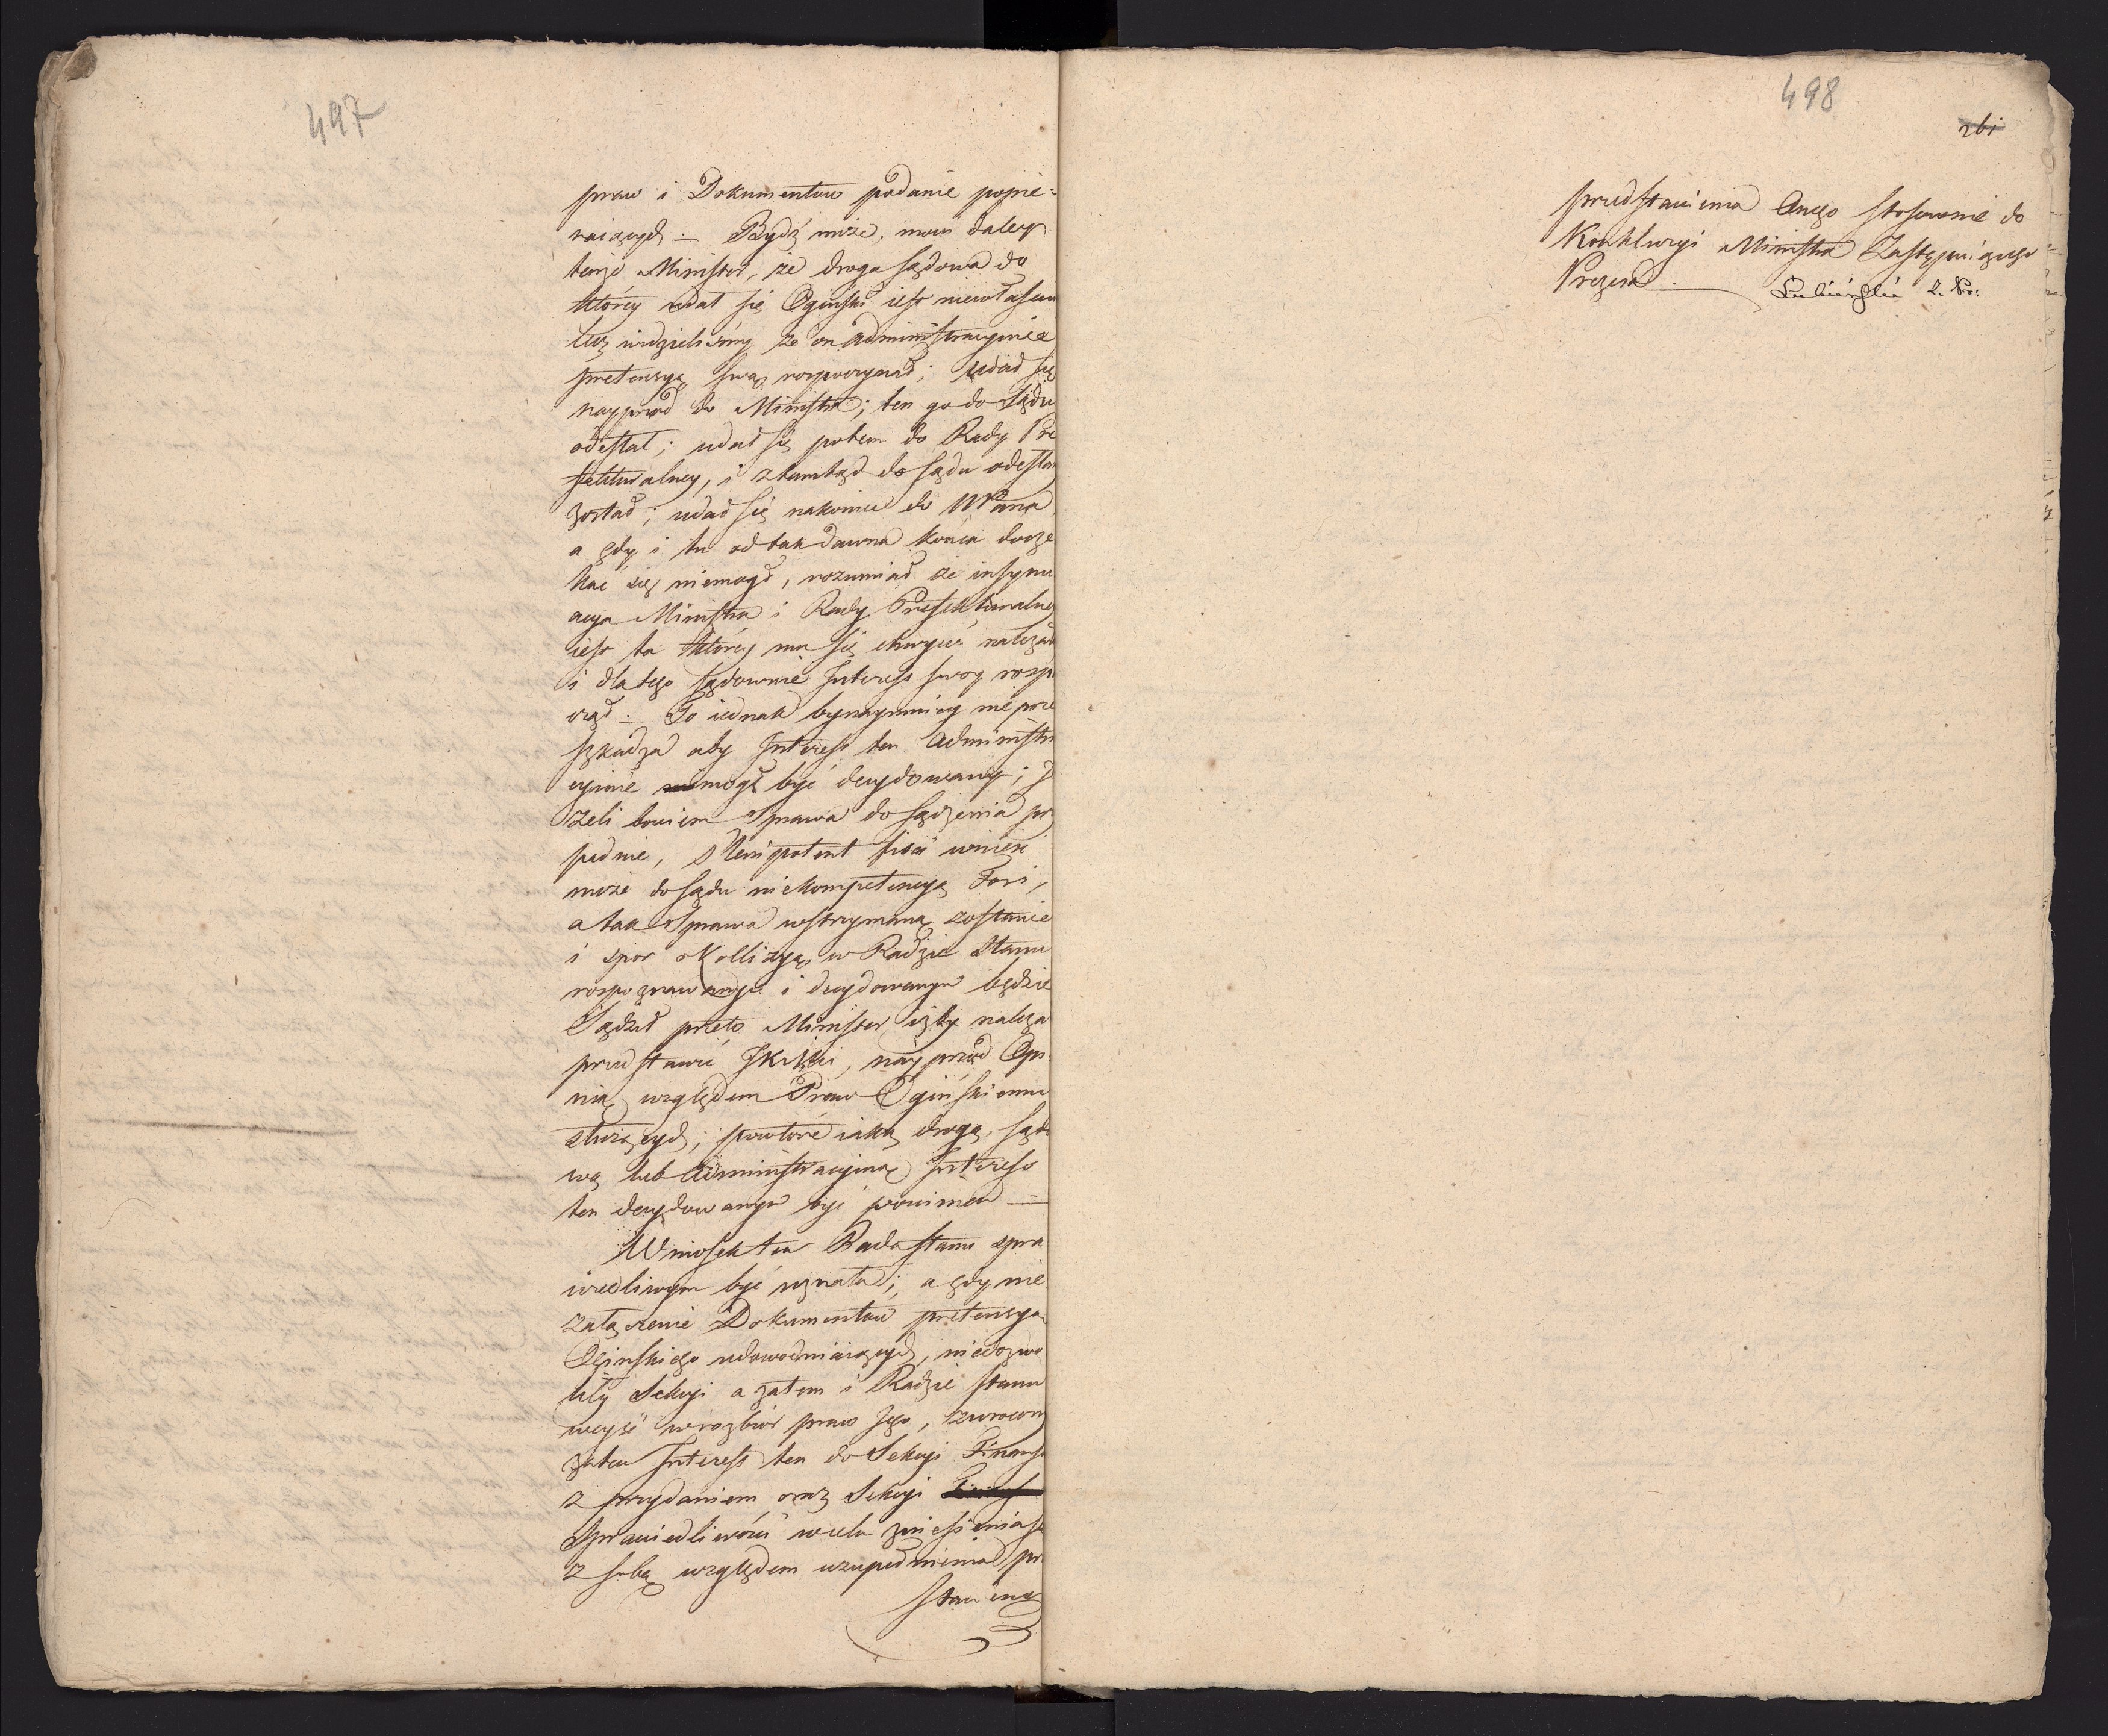 497
praw i Dokumentow podanie popie-
raiących. – Bydź może, mowi daley
tenże Minister, że droga sądowa do
ktorey udał się Oginski iest niewłasciw
lecz widzielismy że on administracyinie
pretensyą swą rozpoczynał; udał się
nayprzod do Ministra; ten go do Sądu
odesłał; udał się potem do Rady Pre
fekturalney, i ztamtąd do sądu odesłan
został; udał się nakoniec do WPana
a gdy i tu od tak dawna końca docze
kać się niemogł, rozumiał że insynu
acya Ministra i Rady Prefekturalney
iest ta ktorey mu się chwycić należał
i dla tego sądownie Interess swoy rozp
czął. – To iednak bynaymniey nie prze
szkadza aby Interess ten Administra
cyinie mogł być decydowany; J
żeli bowiem Sprawa do sądzenia pr
padnie, Plenipotent fisci wnieść
może do sądu niekompetencyą Fori,
a tak Sprawa wstrzymaną zostanie
i spor o Kollizyą w Radzie Stanu
rozpoznawanym i decydowanym będzie
Sądził przeto Minister iżby należa
przedstawić JKMci, nayprzod Opi
nią względem Praw Ogińskiemu
służących; powtore iaką drogą, sądo
wą lub Administracyiną Interess
ten decydowanym być powinien —
Wniosek ten Rada Stanu spra
wiedliwym być uznała; a gdy nie
załączenie Dokumentow pretensyą
Oginskiego udowodniaiących, niedozwo
liły Sekcyi a zatem i Radzie Stanu
weyść w rozbior praw Jego, zwrocony
zatem Interess ten do Sekcyi Finanso
z przydaniem oraz Sekcyi
Sprawiedliwości w celu zniesienia się
z sobą względem uzupełnienia prze
stawienia
498
261
przedstawienia Onego stosownie do
Konkluzyi Ministra Zastępuiącego
Prezesa. — Lubieński Z. Pr: